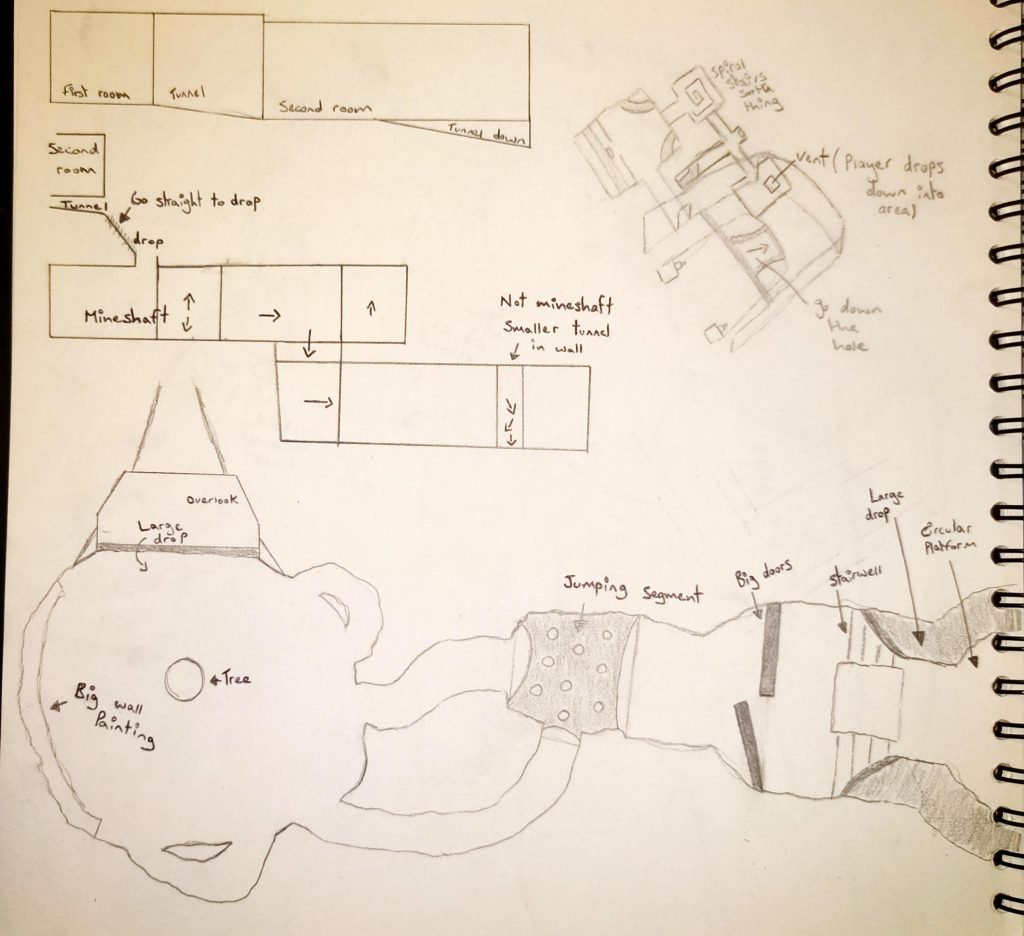 First room
Tunnel
Second room
Tunnel down
spiral
stairs
sorta
thing
vent (Player drops
down into
area)
go down
the
hole
Second
room
Tunnel
Go straight to drop
drop
Mineshaft
Not mineshaft
Smaller tunnel
in wall
Overlook
Large
drop
Tree
Big wall
Painting
Jumping segment
Big doors
Stairwell
Large
drop
Circular
Platform